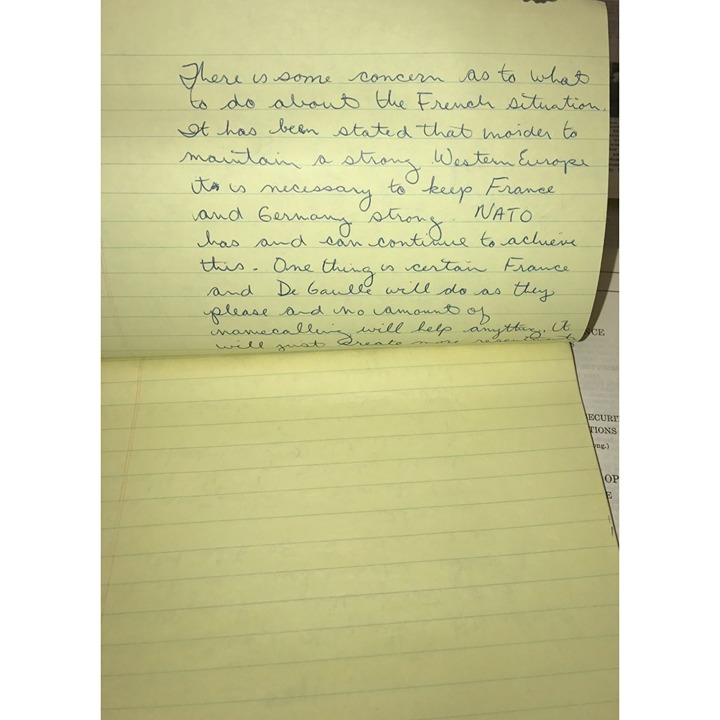 There is some concern as to what
to do about the French situation.
It has been stated that inorder to
maintain a strong Western Europe
it is necessary to keep France
and Germany strong. NATO
has and can continue to achieve
this. One thing is certain France
and De Gaulle will do as they
please and no amount of
namecalling will help anything. It
will just create more
CE
ECURI
TIONS
ong.)
OP
E